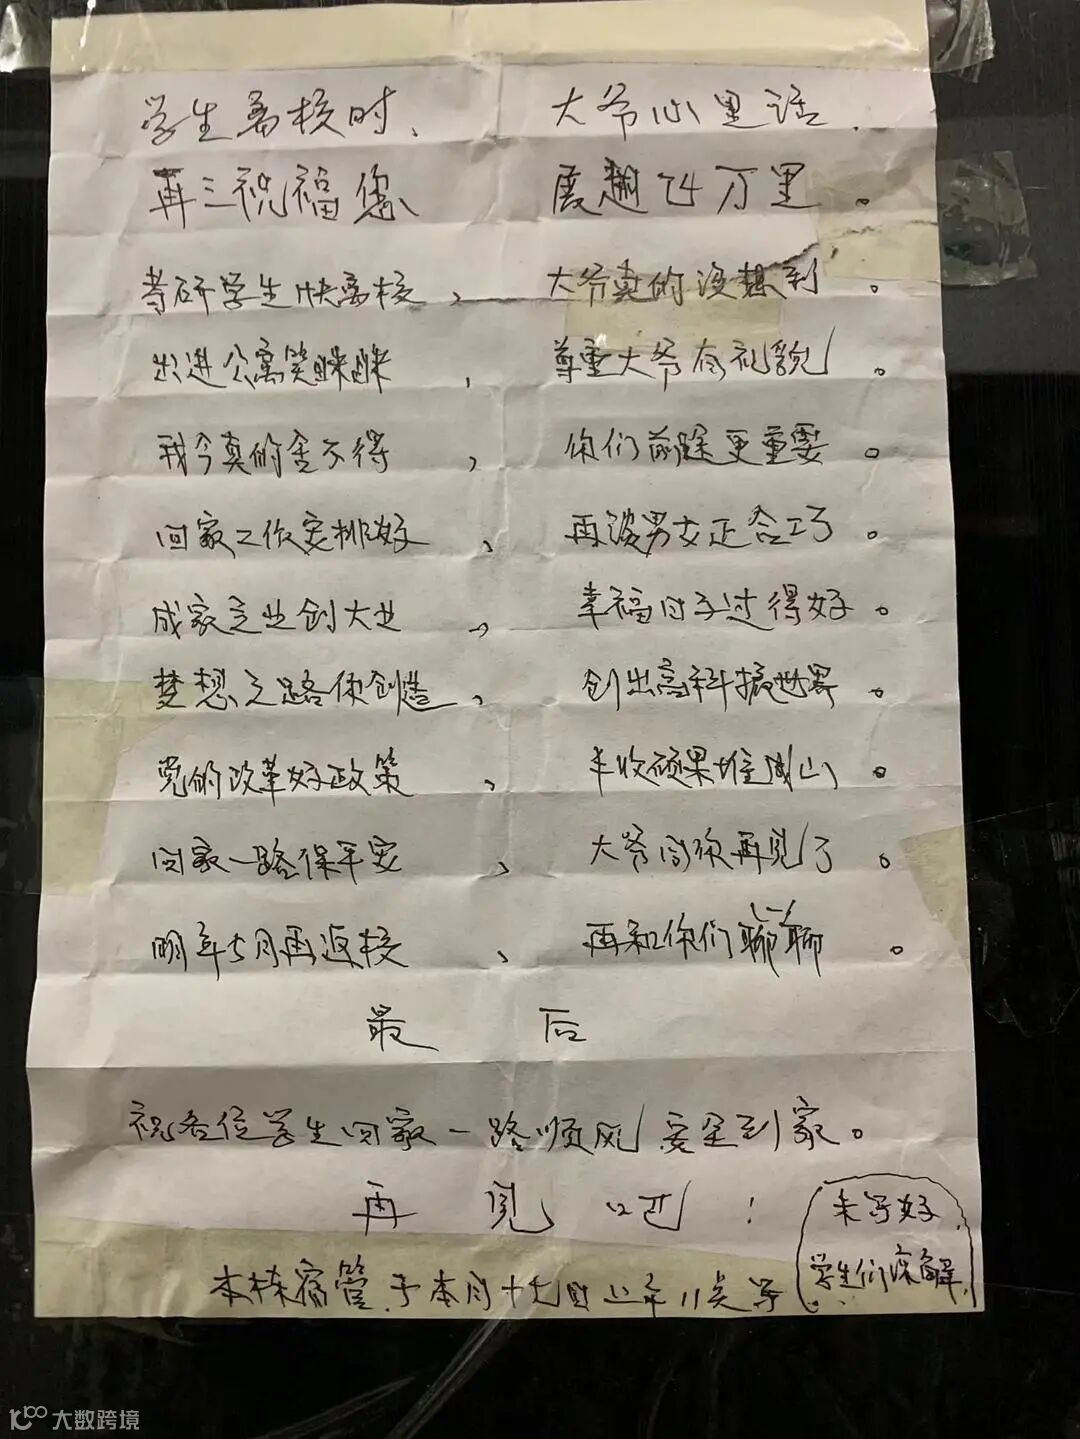 学生离校时、 大爷心里话.
再三祝福您 展翅飞万里。
考研学生快离校, 大爷真的没想到。
出进公寓笑眯眯, 尊重大爷有礼貌。
我今真的舍不得, 你们前途更重要。
回家工作安排好、 再谈男女正合巧。
成家立业创大业、 幸福日子过得好。
梦想之路你创造、 创出高科振世界。
党的改革好政策、 丰收硕果堆成山。
回家一路保平安、 大爷同你再见了。
明年5月再返校、 再和你们聊聊。
最 后
祝各位学生回家一路顺风安全到家。
再 见 吧!
未写好
学生们谅解
本栋宿管于本月十七日上午11点写
大数跨境